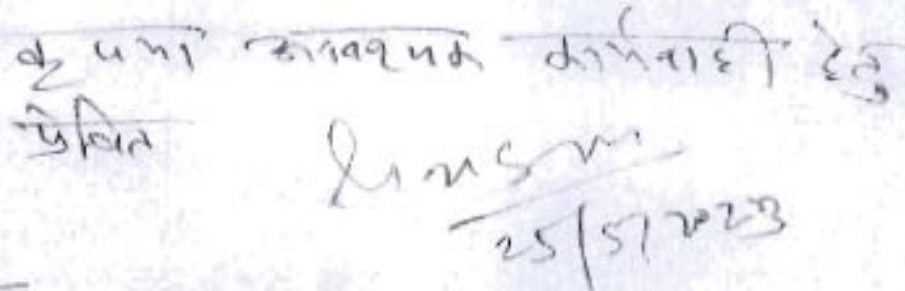 कृपया आवश्यक कार्यवाही हेतु
प्रेषित
25/5/2023